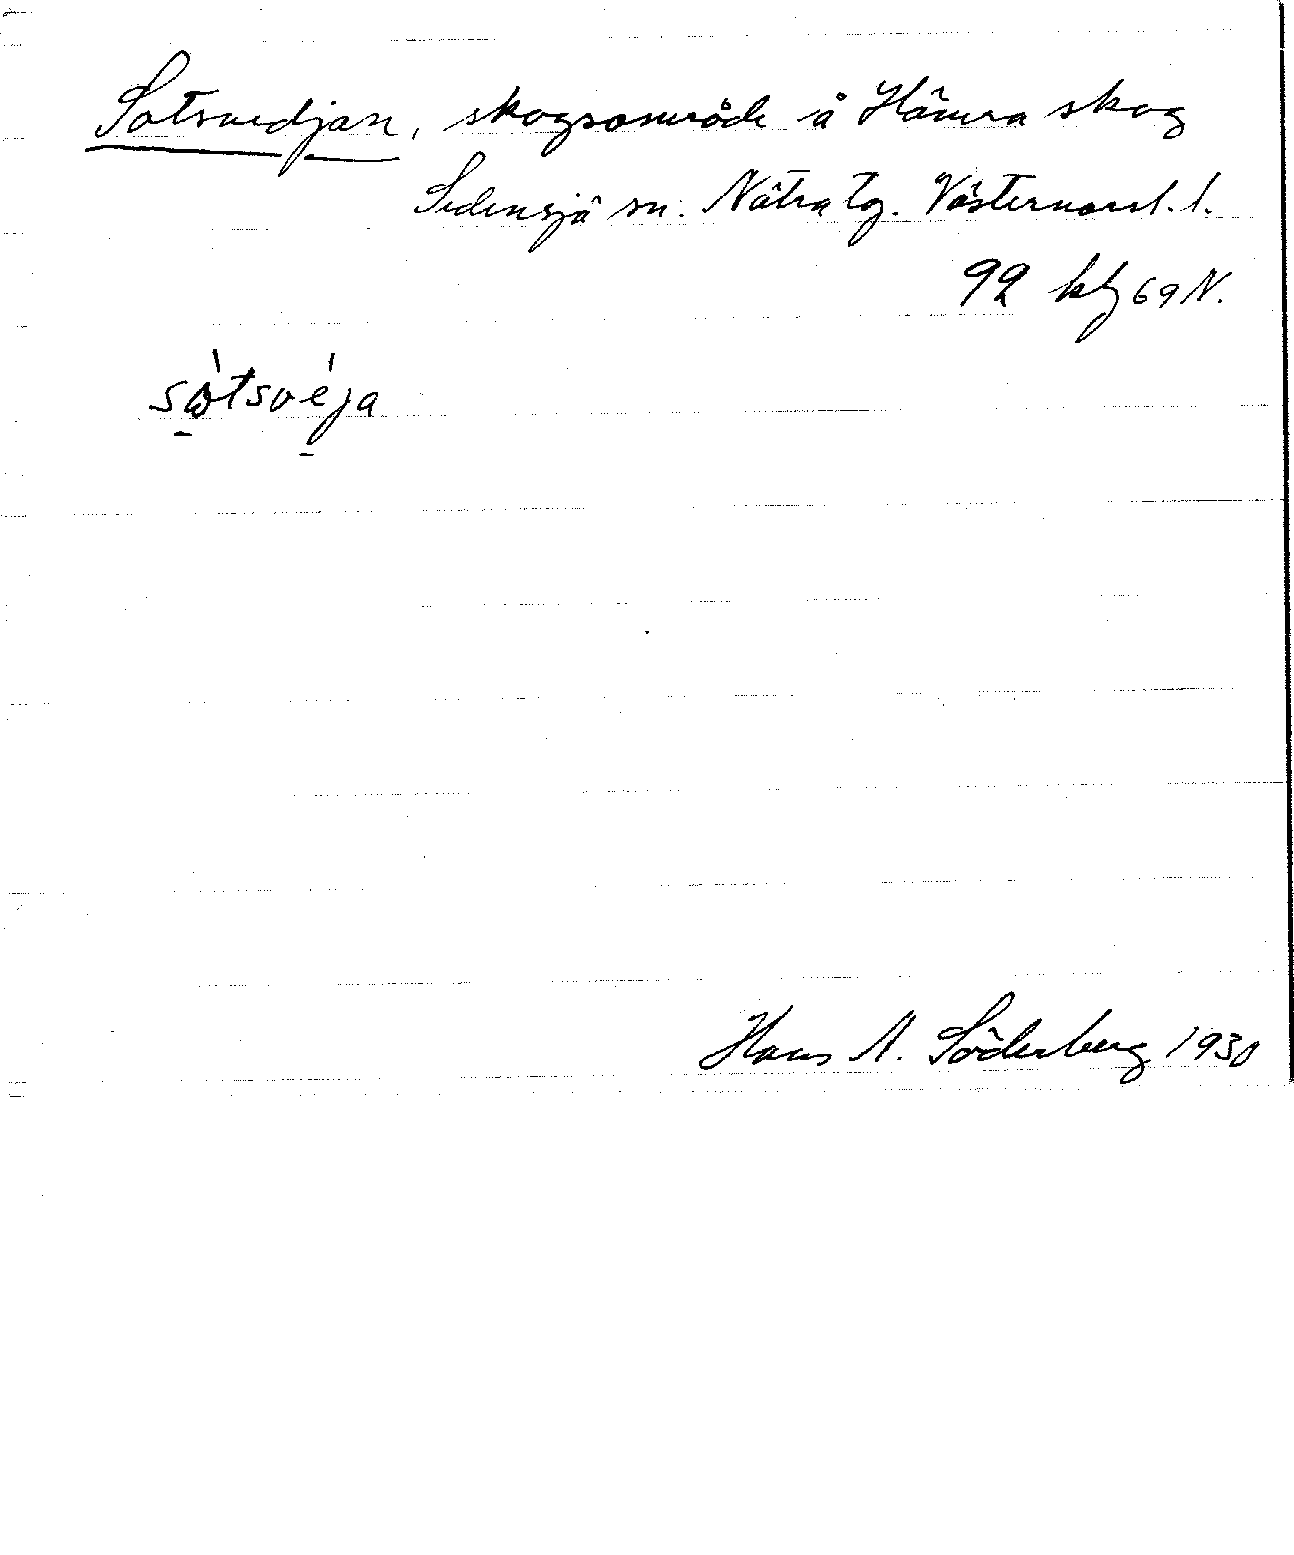 Sotsvedjan, skogsområde å Hämra skog
Sidensjö sn. Nätra tg. Västernorrl. l.
99 kbl 69 N.
sòtsvéja
Hans N. Söderberg 1930